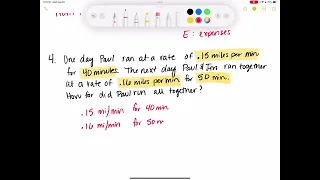 E : expenses
4. One day Paul ran at a rate of .15 miles per min
for 40 minutes. The next day Paul & Jen ran together
at a rate of .16 miles per min for 50 min.
How far did Paul run all together?
.15 mi/min for 40 min
.16 mi/min for 50 m